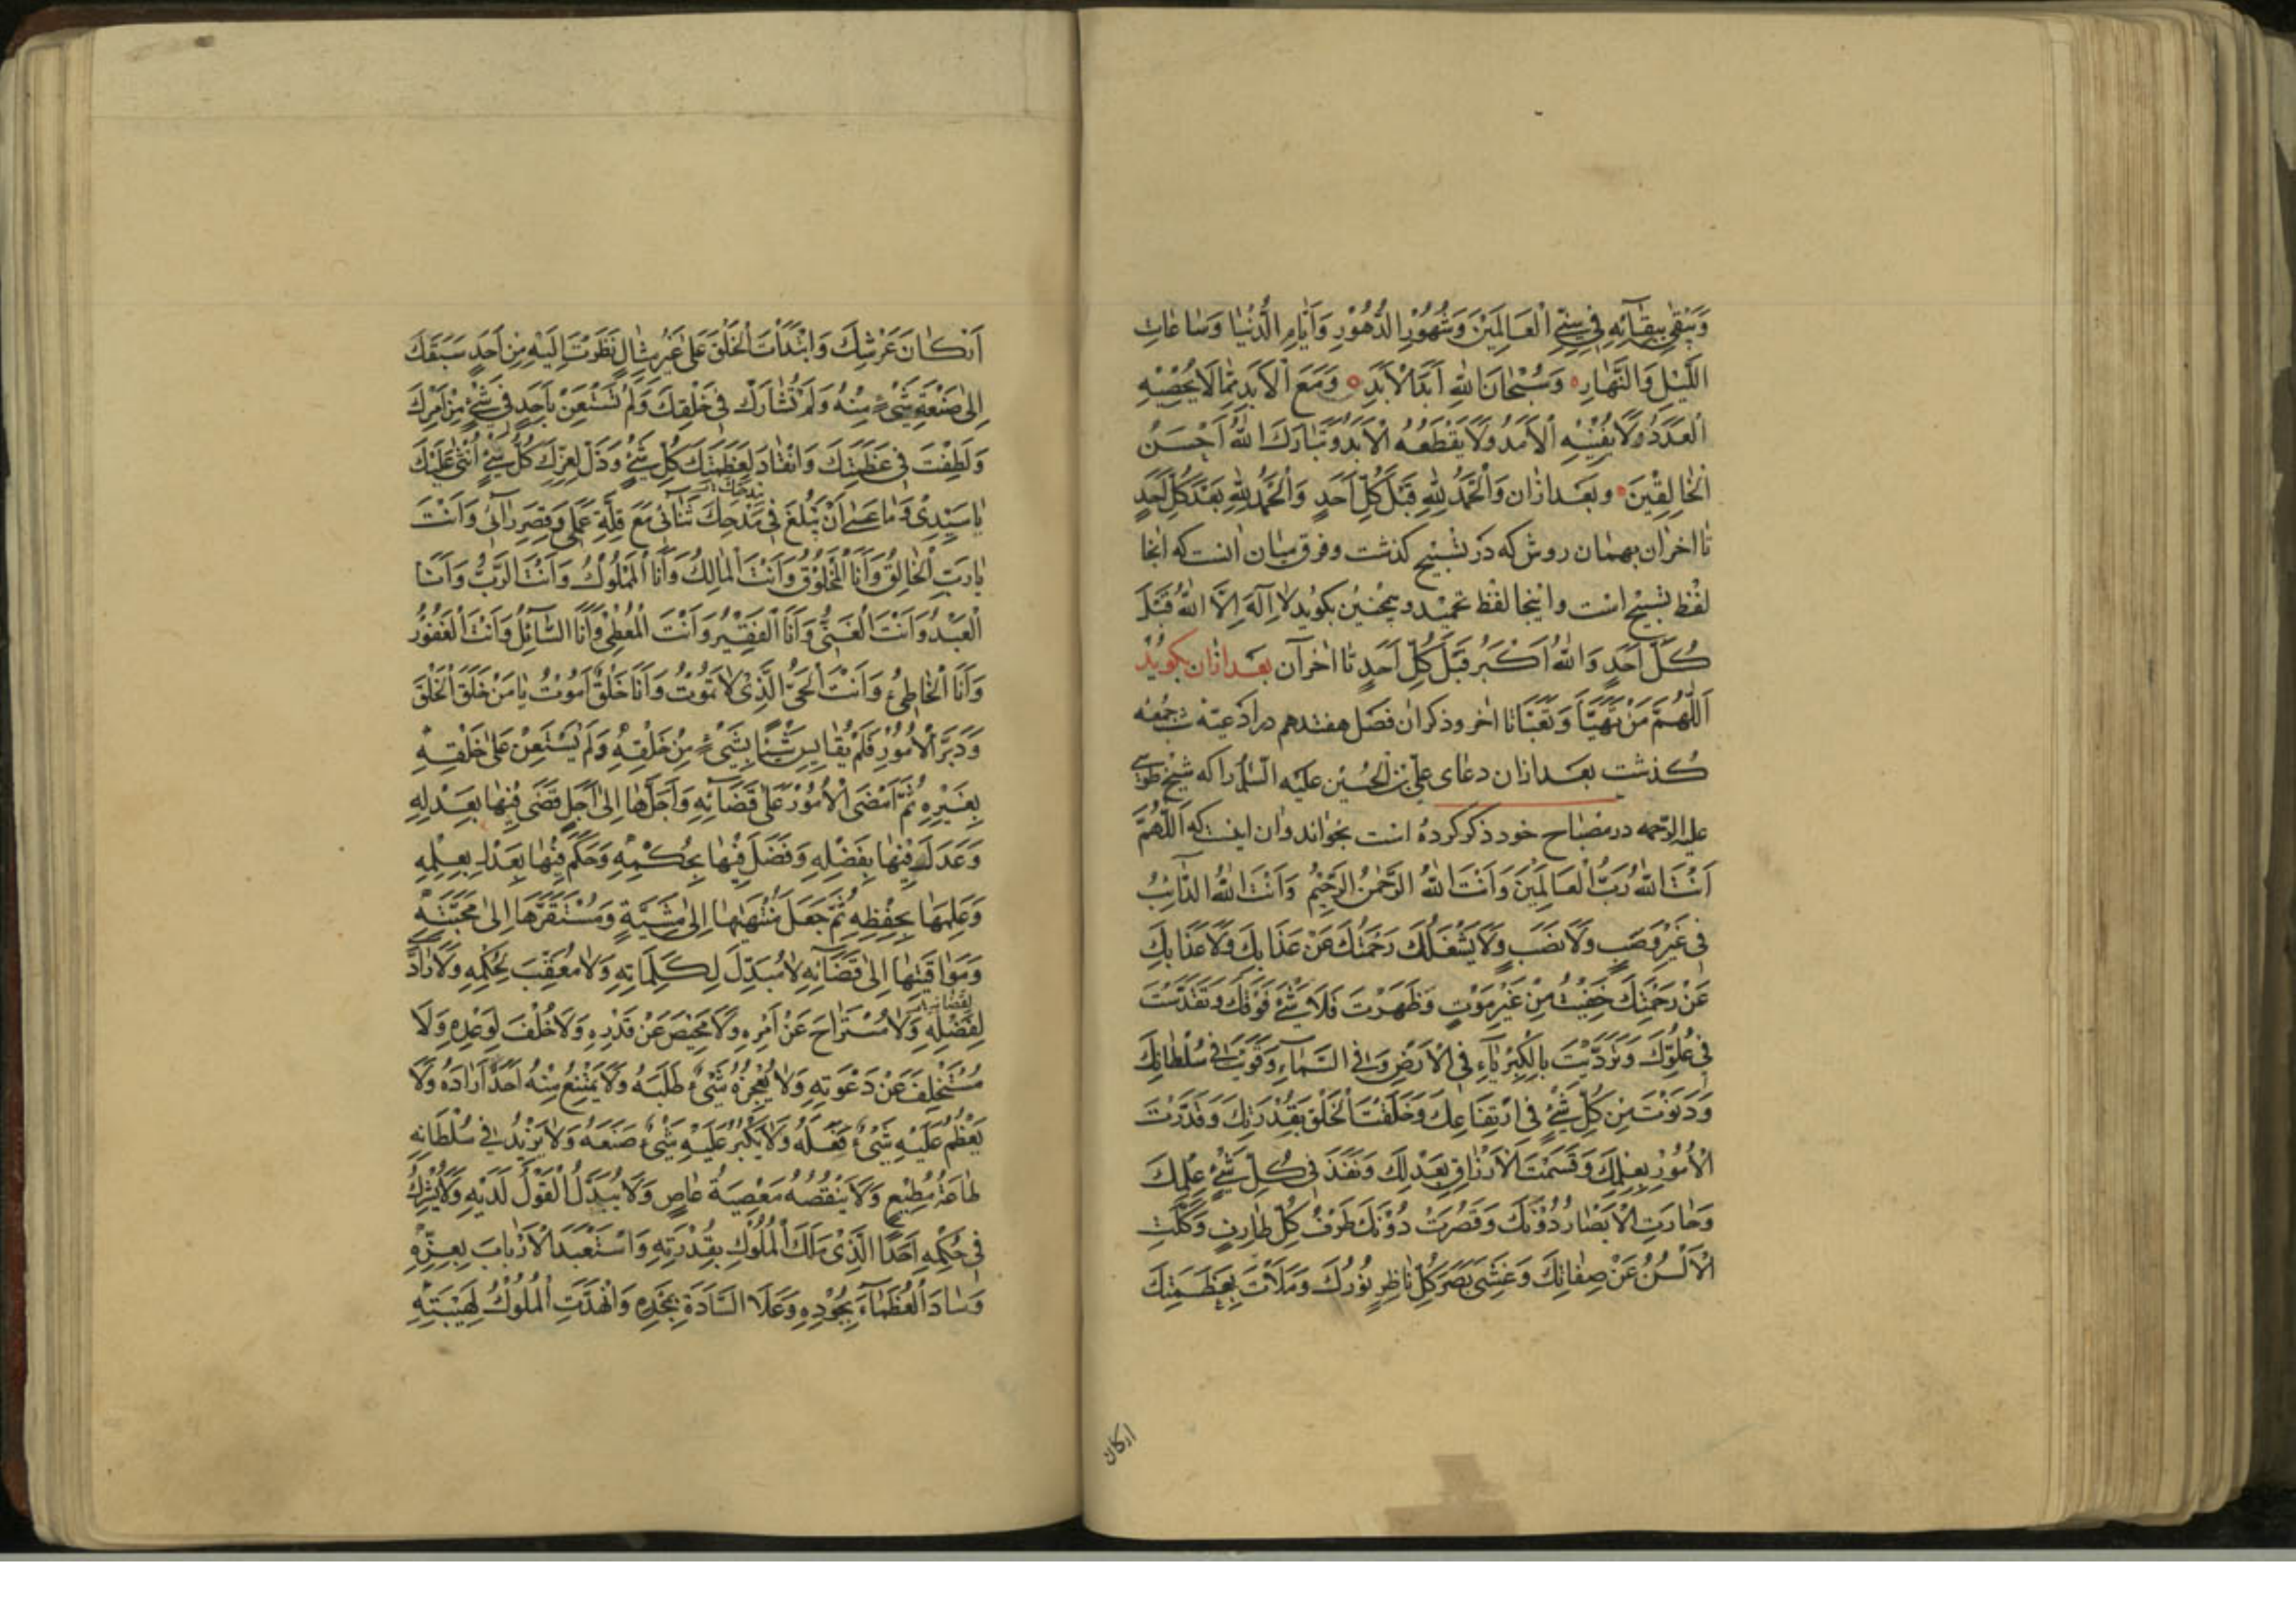 وَيَبْقٰى بِبَقَآئِهِ فِي سِنِي الْعَالَمِيْنَ وَشُهُوْرِ الدُّهُوْرِ وَاَيَّامِ الدُّنْيَا وَسَاعَاتِ
اللَّيْلِ وَالنَّهَارِ وَسُبْحَانَ اللهِ اَبَدَ الْاَبَدِ وَمَعَ الْاَبَدِ مِمَّا لَا يُحْصِيْهِ
الْعَدَدُ وَلَا يُفْنِيْهِ الْاَمَدُ وَلَا يَقْطَعُهُ الْاَبَدُ وَتَبَارَكَ اللهُ اَحْسَنُ
الْخَالِقِيْنَ وبعد ازان وَالْحَمْدُ لِلّهِ قَبْلَ كُلِّ اَحَدٍ وَالْحَمْدُ لِلّهِ بَعْدَ كُلِّ اَحَدٍ
تا اخر ان بهمان روش كه در تسبيح كذشت وفرق ميان انست كه انجا
لفظ تسبيح است واينجا لفظ تحميد وهمچنين بكويد لَا اِلَهَ اِلَّا اللهُ قَبْلَ
كُلِّ اَحَدٍ وَاللهُ اَكْبَرُ قَبْلَ كُلِّ اَحَدٍ تا اخر آن بعد ازان بكويد
اَللّهُمَّ مَنْ تَهَيَّاَ وَتَعَبَّاَ تا اخر وذكر ان فصل هفتدهم در ادعيهٔ شب جمعه
كذشت بعد ازان دعاى علي بن الحسين عليه السلم را كه شيخ طوسى
عليه الرحمه در مصباح خود ذكر كرده است بخواند وان اينست كه اَللّهُمَّ
اَنْتَ اللهُ رَبُّ الْعَالَمِيْنَ وَاَنْتَ اللهُ الرَّحْمٰنُ الرَّحِيْمُ وَاَنْتَ اللهُ الدَّآئِبُ
فِي غَيْرِ وَصَبٍ وَلَا نَصَبٍ وَلَا يَشْغَلُكَ رَحْمَتُكَ عَنْ عَذَابِكَ وَلَا عَذَابُكَ
عَنْ رَحْمَتِكَ خَفِيْتَ مِنْ غَيْرِ مَوْتٍ وَظَهَرْتَ فَلَا شَيْءَ فَوْقَكَ وَتَقَدَّسْتَ
فِي عُلُوِّكَ وَتَرَدَّيْتَ بِالْكِبْرِيَآءِ فِي الْاَرْضِ وَفِي السَّمَآءِ وَقَوِيْتَ فِي سُلْطَانِكَ
وَدَنَوْتَ مِنْ كُلِّ شَيْءٍ فِي ارْتِفَاعِكَ وَخَلَقْتَ الْخَلْقَ بِقُدْرَتِكَ وَقَدَّرْتَ
الْاُمُوْرَ بِعِلْمِكَ وَقَسَمْتَ الْاَرْزَاقَ بِعَدْلِكَ وَنَفَذَ فِي كُلِّ شَيْءٍ عِلْمُكَ
وَحَارَتِ الْاَبْصَارُ دُوْنَكَ وَقَصُرَتْ دُوْنَكَ طَرْفُ كُلِّ طَارِفٍ وَكَلَّتِ
الْاَلْسُنُ عَنْ صِفَاتِكَ وَغَشِيَ بَصَرَ كُلِّ نَاظِرٍ نُوْرُكَ وَمَلَأْتَ بِعَظَمَتِكَ
اركان
اَرْكَانَ عَرْشِكَ وَابْتَدَأْتَ الْخَلْقَ عَلٰى غَيْرِ مِثَالٍ نَظَرْتَ اِلَيْهِ مِنْ اَحَدٍ سَبَقَكَ
اِلٰى صَنْعَةِ شَيْءٍ مِنْهُ وَلَمْ تُشَارَكْ فِي خَلْقِكَ وَلَمْ تَسْتَعِنْ بِاَحَدٍ فِي شَيْءٍ مِنْ اَمْرِكَ
وَلَطُفْتَ فِي عَظَمَتِكَ وَانْقَادَ لِعَظَمَتِكَ كُلُّ شَيْءٍ وَذَلَّ لِعِزِّكَ كُلُّ شَيْءٍ اُثْنِي عَلَيْكَ
يَا سَيِّدِي وَمَا عَسٰى اَنْ يَبْلُغَ فِي مَدْحِكَ ثَنَائِي مَعَ قِلَّةِ عَمَلِي وَقِصَرِ رَائِي وَاَنْتَ
يَا رَبِّ الْخَالِقُ وَاَنَا الْمَخْلُوْقُ وَاَنْتَ الْمَالِكُ وَاَنَا الْمَمْلُوْكُ وَاَنْتَ الرَّبُّ وَاَنَا
الْعَبْدُ وَاَنْتَ الْغَنِيُّ وَاَنَا الْفَقِيْرُ وَاَنْتَ الْمُعْطِيْ وَاَنَا السَّآئِلُ وَاَنْتَ الْغَفُوْرُ
وَاَنَا الْخَاطِئُ وَاَنْتَ الْحَيُّ الَّذِيْ لَا تَمُوْتُ وَاَنَا خَلْقٌ اَمُوْتُ يَا مَنْ خَلَقَ الْخَلْقَ
وَدَبَّرَ الْاُمُوْرَ فَلَمْ يُقَايِسْ شَيْئًا بِشَيْءٍ مِنْ خَلْقِهِ وَلَمْ يَسْتَعِنْ عَلٰى خَلْقِهِ
بِغَيْرِهِ ثُمَّ اَمْضَى الْاُمُوْرَ عَلٰى قَضَآئِهِ وَاَجَّلَهَا اِلٰى اَجَلٍ قَضٰى فِيْهَا بِعَدْلِهِ
وَعَدَلَ فِيْهَا بِفَضْلِهِ وَفَضَلَ فِيْهَا بِحُكْمِهِ وَحَكَمَ فِيْهَا بِعَدْلِهِ بِعِلْمِهِ
وَعَلِمَهَا بِحِفْظِهِ ثُمَّ جَعَلَ مُنْتَهٰيهَا اِلٰى مَشِيَّةٍ وَمُسْتَقَرَّهَا اِلٰى مَحَبَّتِهِ
وَمَوَاقِيْتَهَا اِلٰى قَضَآئِهِ لَا مُبَدِّلَ لِكَلِمَاتِهِ وَلَا مُعَقِّبَ لِحُكْمِهِ وَلَا رَادَّ
لقضائه
لِفَضْلِهِ وَلَا مُسْتَرَاحَ عَنْ اَمْرِهِ وَلَا مَحِيْصَ عَنْ قَدْرِهِ وَلَا خُلْفَ لِوَعْدِهِ وَلَا
مُتَخَلِّفَ عَنْ دَعْوَتِهِ وَلَا يُعْجِزُهُ شَيْءٌ طَلَبَهُ وَلَا يَمْتَنِعُ مِنْهُ اَحَدٌ اَرَادَهُ وَلَا
يَعْظُمُ عَلَيْهِ شَيْءٌ فَعَلَهُ وَلَا يَكْبُرُ عَلَيْهِ شَيْءٌ صَنَعَهُ وَلَا يَزِيْدُ فِي سُلْطَانِهِ
طَاعَةُ مُطِيْعٍ وَلَا يَنْقُصُهُ مَعْصِيَةُ عَاصٍ وَلَا يُبَدَّلُ الْقَوْلُ لَدَيْهِ وَلَا يُشْرِكُ
فِي حُكْمِهِ اَحَدًا الَّذِيْ مَلَكَ الْمُلُوْكَ بِقُدْرَتِهِ وَاسْتَعْبَدَ الْاَرْبَابَ بِعِزِّهِ
وَسَادَ الْعُظَمَآءَ بِجُوْدِهِ وَعَلَا السَّادَةَ بِمَجْدِهِ وَانْهَدَّتِ الْمُلُوْكُ لِهَيْبَتِهِ